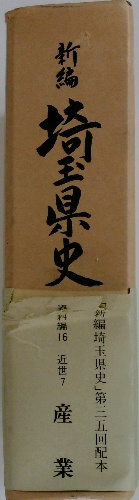 新編
埼玉県史
「新編埼玉県史」第三五回配本
資料編16 近世7
産業